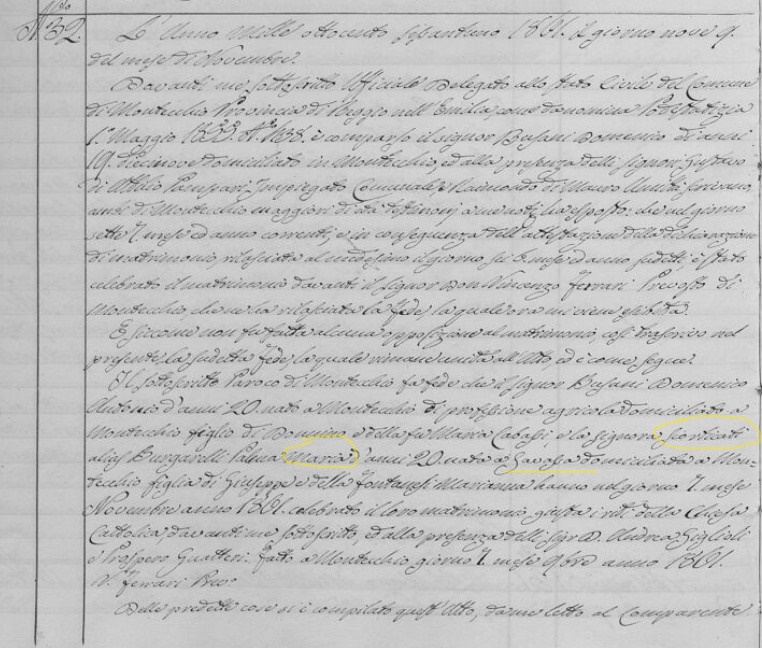 N. 32. L'Anno mille ottocento sessantuno 1861. il giorno nove 9.
del mese di Novembre.
Davanti me sottoscritto Uffiziale Delegato allo Stato Civile del Comune
di Montecchio Provincia di Reggio nell'Emilia come da nomina Podestarizia
1.° Maggio N.° è comparso il signor Busani Domenico di anni
19. diecinove domiciliato in Montecchio, ed alla presenza delli signori Gustavo
di Attilio Impiegato Comunale, e Raimondo di Mauro scrivano,
ambi di Montecchio maggiori di età testimonj a me noti, ha esposto: che nel giorno
sette 7. mese ed anno correnti, e in conseguenza dell'attestazione della dichiarazione
di matrimonio, rilasciata al medesimo il giorno sei 6. mese ed anno sudetti, è stato
celebrato il matrimonio davanti il signor Don Vincenzo Ferrari Prevosto di
Montecchio, che ne ha rilasciata la fede, la quale ora mi viene esibita.
E siccome non fu fatta alcuna opposizione al matrimonio, così trascrivo nel
presente la sudetta fede, la quale rimane unita all'Atto, ed è come segue.
Il sottoscritto Paroco di Montecchio fa fede che il signor Busani Domenico
Antonio d'anni 20. nato a Montecchio di professione agricola domiciliato a
Montecchio figlio di e della fu Maria Casassi, e la signora Scorticati
alias Burgarelli Palma Maria d'anni 20. nata a domiciliata a Mon=
tecchio figlia di Giuseppe e della Fontanesi Marianna hanno nel giorno 7. mese
Novembre anno 1861. celebrato il loro matrimonio giusta i riti della Chiesa
Cattolica, davanti me sottoscritto, ed alla presenza delli Sigri D. Andrea Giglioli
e Prospero Guatteri. Fatto a Montecchio giorno 7. mese 9bre anno 1861.
V. Ferrari Prev.°
Delle predette cose si è compilato quest'Atto, da me letto al Comparente